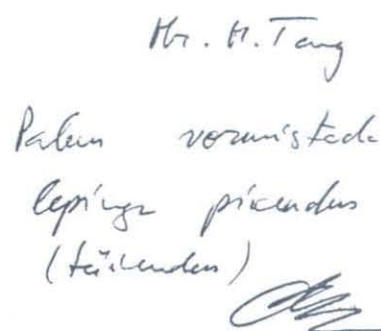 Hr. H. Tang
Palun vormistada
lepingu pikendus
(täiendus)